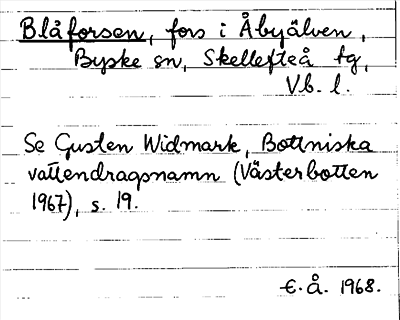 Blåforsen, fors i Åbyälven,
Byske sn, Skellefteå tg,
Vb. l.
Se Gusten Widmark, Bottniska
vattendragsnamn (Västerbotten
1967), s. 19.
E.Å. 1968.